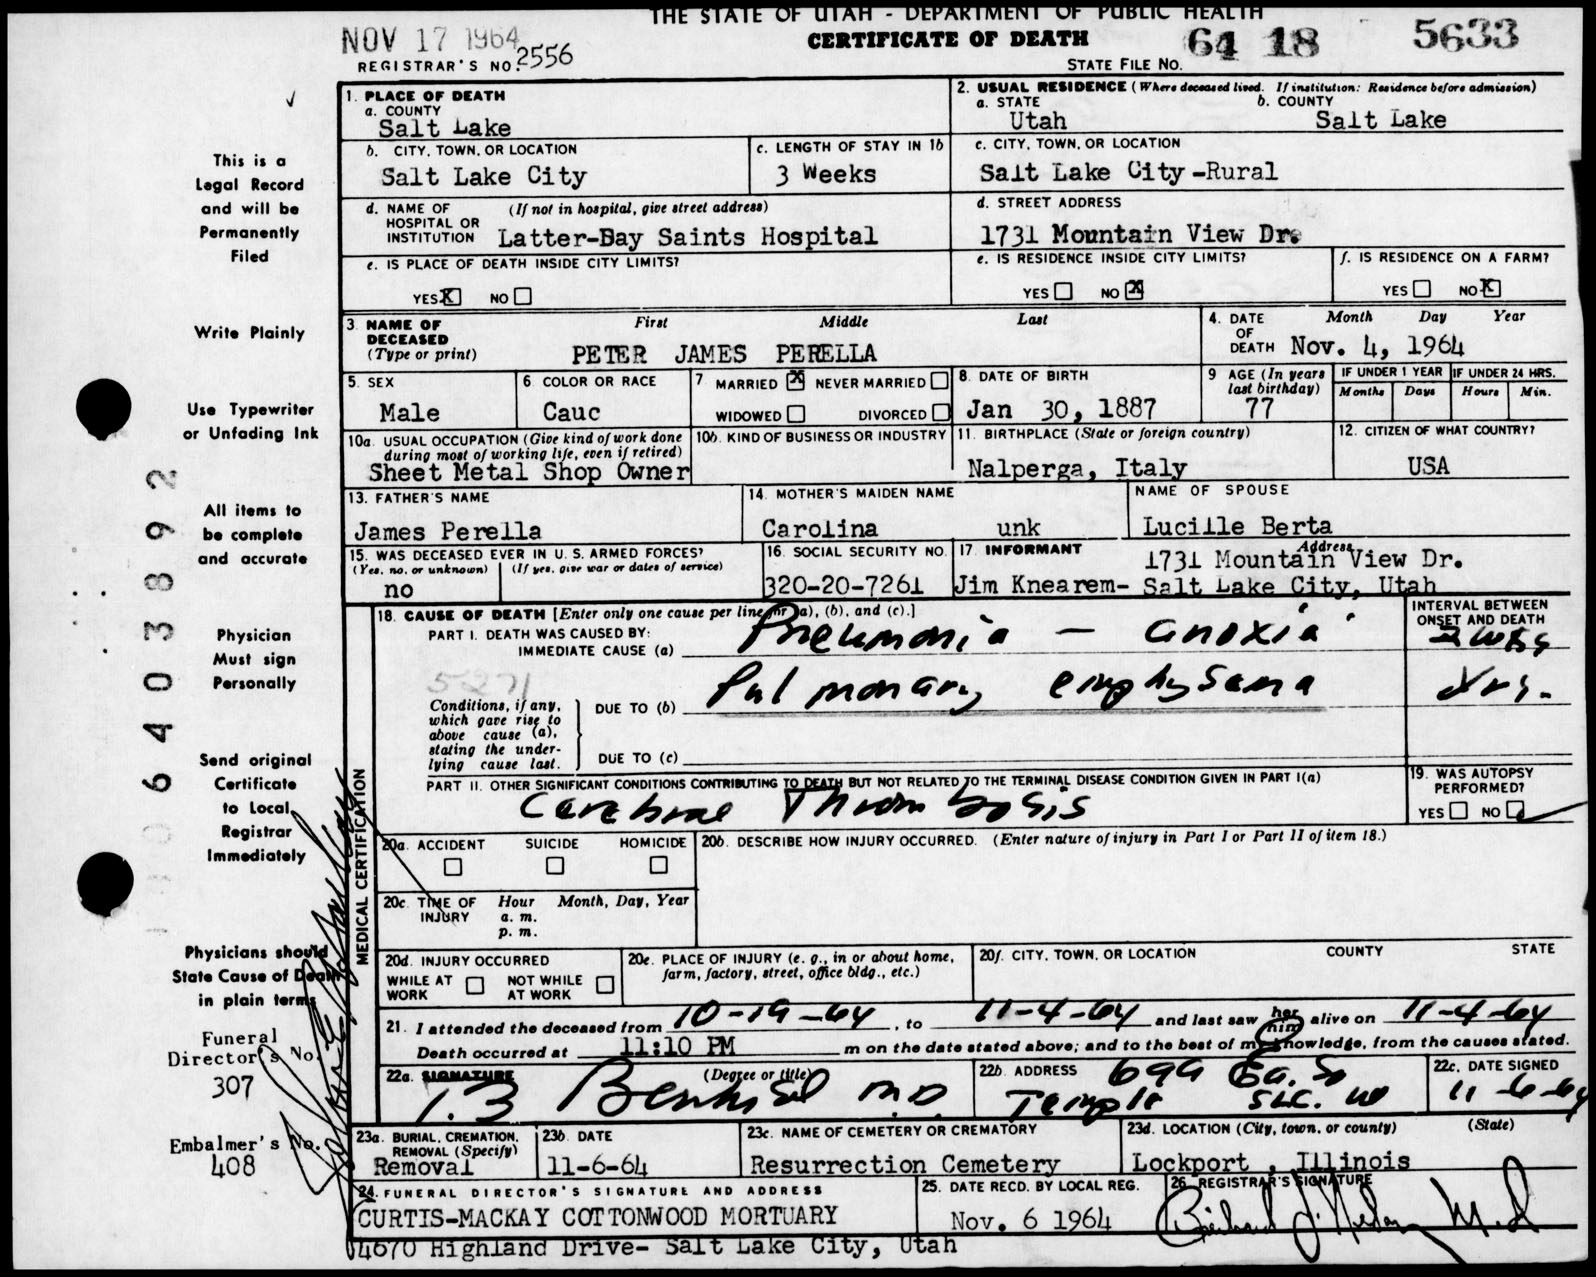 THE STATE OF UTAH - DEPARTMENT OF PUBLIC HEALTH
CERTIFICATE OF DEATH
NOV 17 1964
REGISTRAR'S NO. 2556
STATE FILE NO. 64 18 5633
This is a
Legal Record
and will be
Permanently
Filed
Write Plainly
Use Typewriter
or Unfading Ink
All items to
be complete
and accurate
Physician
Must sign
Personally
Send original
Certificate
to Local
Registrar
Immediately
Physicians should
State Cause of Death
in plain terms
Funeral
Director's No.
307
Embalmer's No.
408
6403892
1. PLACE OF DEATH
a. COUNTY
Salt Lake
2. USUAL RESIDENCE (Where deceased lived. If institution: Residence before admission)
a. STATE b. COUNTY
Utah Salt Lake
b. CITY, TOWN, OR LOCATION
Salt Lake City
c. LENGTH OF STAY IN 1b
3 Weeks
c. CITY, TOWN, OR LOCATION
Salt Lake City-Rural
d. NAME OF (If not in hospital, give street address)
HOSPITAL OR
INSTITUTION Latter-Bay Saints Hospital
d. STREET ADDRESS
1731 Mountain View Dr.
e. IS PLACE OF DEATH INSIDE CITY LIMITS?
YES X NO
e. IS RESIDENCE INSIDE CITY LIMITS?
YES NO X
f. IS RESIDENCE ON A FARM?
YES NO X
3. NAME OF
DECEASED
(Type or print)
First Middle Last
PETER JAMES PERELLA
4. DATE
OF
DEATH
Month Day Year
Nov. 4, 1964
5. SEX
Male
6 COLOR OR RACE
Cauc
7 MARRIED X NEVER MARRIED
WIDOWED DIVORCED
8. DATE OF BIRTH
Jan 30, 1887
9 AGE (In years
last birthday)
77
IF UNDER 1 YEAR
Months Days
IF UNDER 24 HRS.
Hours Min.
10a. USUAL OCCUPATION (Give kind of work done
during most of working life, even if retired)
Sheet Metal Shop Owner
10b. KIND OF BUSINESS OR INDUSTRY
11. BIRTHPLACE (State or foreign country)
Nalperga, Italy
12. CITIZEN OF WHAT COUNTRY?
USA
13. FATHER'S NAME
James Perella
14. MOTHER'S MAIDEN NAME
Carolina unk
NAME OF SPOUSE
Lucille Berta
15. WAS DECEASED EVER IN U. S. ARMED FORCES?
(Yes, no, or unknown) (If yes, give war or dates of service)
no
16. SOCIAL SECURITY NO.
320-20-7261
17. INFORMANT Address
1731 Mountain View Dr.
Jim Knearem- Salt Lake City, Utah
18. CAUSE OF DEATH [Enter only one cause per line for (a), (b), and (c).]
INTERVAL BETWEEN
ONSET AND DEATH
PART I. DEATH WAS CAUSED BY:
IMMEDIATE CAUSE (a) Pneumonia - anoxia 2 wks
5271
Conditions, if any,
which gave rise to
above cause (a),
stating the under-
lying cause last.
DUE TO (b) Pulmonary emphysema Yrs.
DUE TO (c)
PART II. OTHER SIGNIFICANT CONDITIONS CONTRIBUTING TO DEATH BUT NOT RELATED TO THE TERMINAL DISEASE CONDITION GIVEN IN PART I(a)
Cerebral Thrombosis
19. WAS AUTOPSY
PERFORMED?
YES NO
MEDICAL CERTIFICATION
20a. ACCIDENT SUICIDE HOMICIDE
20b. DESCRIBE HOW INJURY OCCURRED. (Enter nature of injury in Part I or Part II of item 18.)
20c. TIME OF
INJURY
Hour Month, Day, Year
a. m.
p. m.
20d. INJURY OCCURRED
WHILE AT
WORK
NOT WHILE
AT WORK
20e. PLACE OF INJURY (e. g., in or about home,
farm, factory, street, office bldg., etc.)
20f. CITY, TOWN, OR LOCATION COUNTY STATE
21. I attended the deceased from 10-19-64, to 11-4-64 and last saw her him alive on 11-4-64
Death occurred at 11:10 PM m on the date stated above; and to the best of my knowledge, from the causes stated.
22a. SIGNATURE (Degree or title)
M.D.
22b. ADDRESS 699 Ea. So
Temple SLC. Ut
22c. DATE SIGNED
11-6-64
23a. BURIAL, CREMATION,
REMOVAL (Specify)
Removal
23b. DATE
11-6-64
23c. NAME OF CEMETERY OR CREMATORY
Resurrection Cemetery
23d. LOCATION (City, town, or county) (State)
Lockport, Illinois
24. FUNERAL DIRECTOR'S SIGNATURE AND ADDRESS
CURTIS-MACKAY COTTONWOOD MORTUARY
4670 Highland Drive- Salt Lake City, Utah
25. DATE RECD. BY LOCAL REG.
Nov. 6 1964
26. REGISTRAR'S SIGNATURE